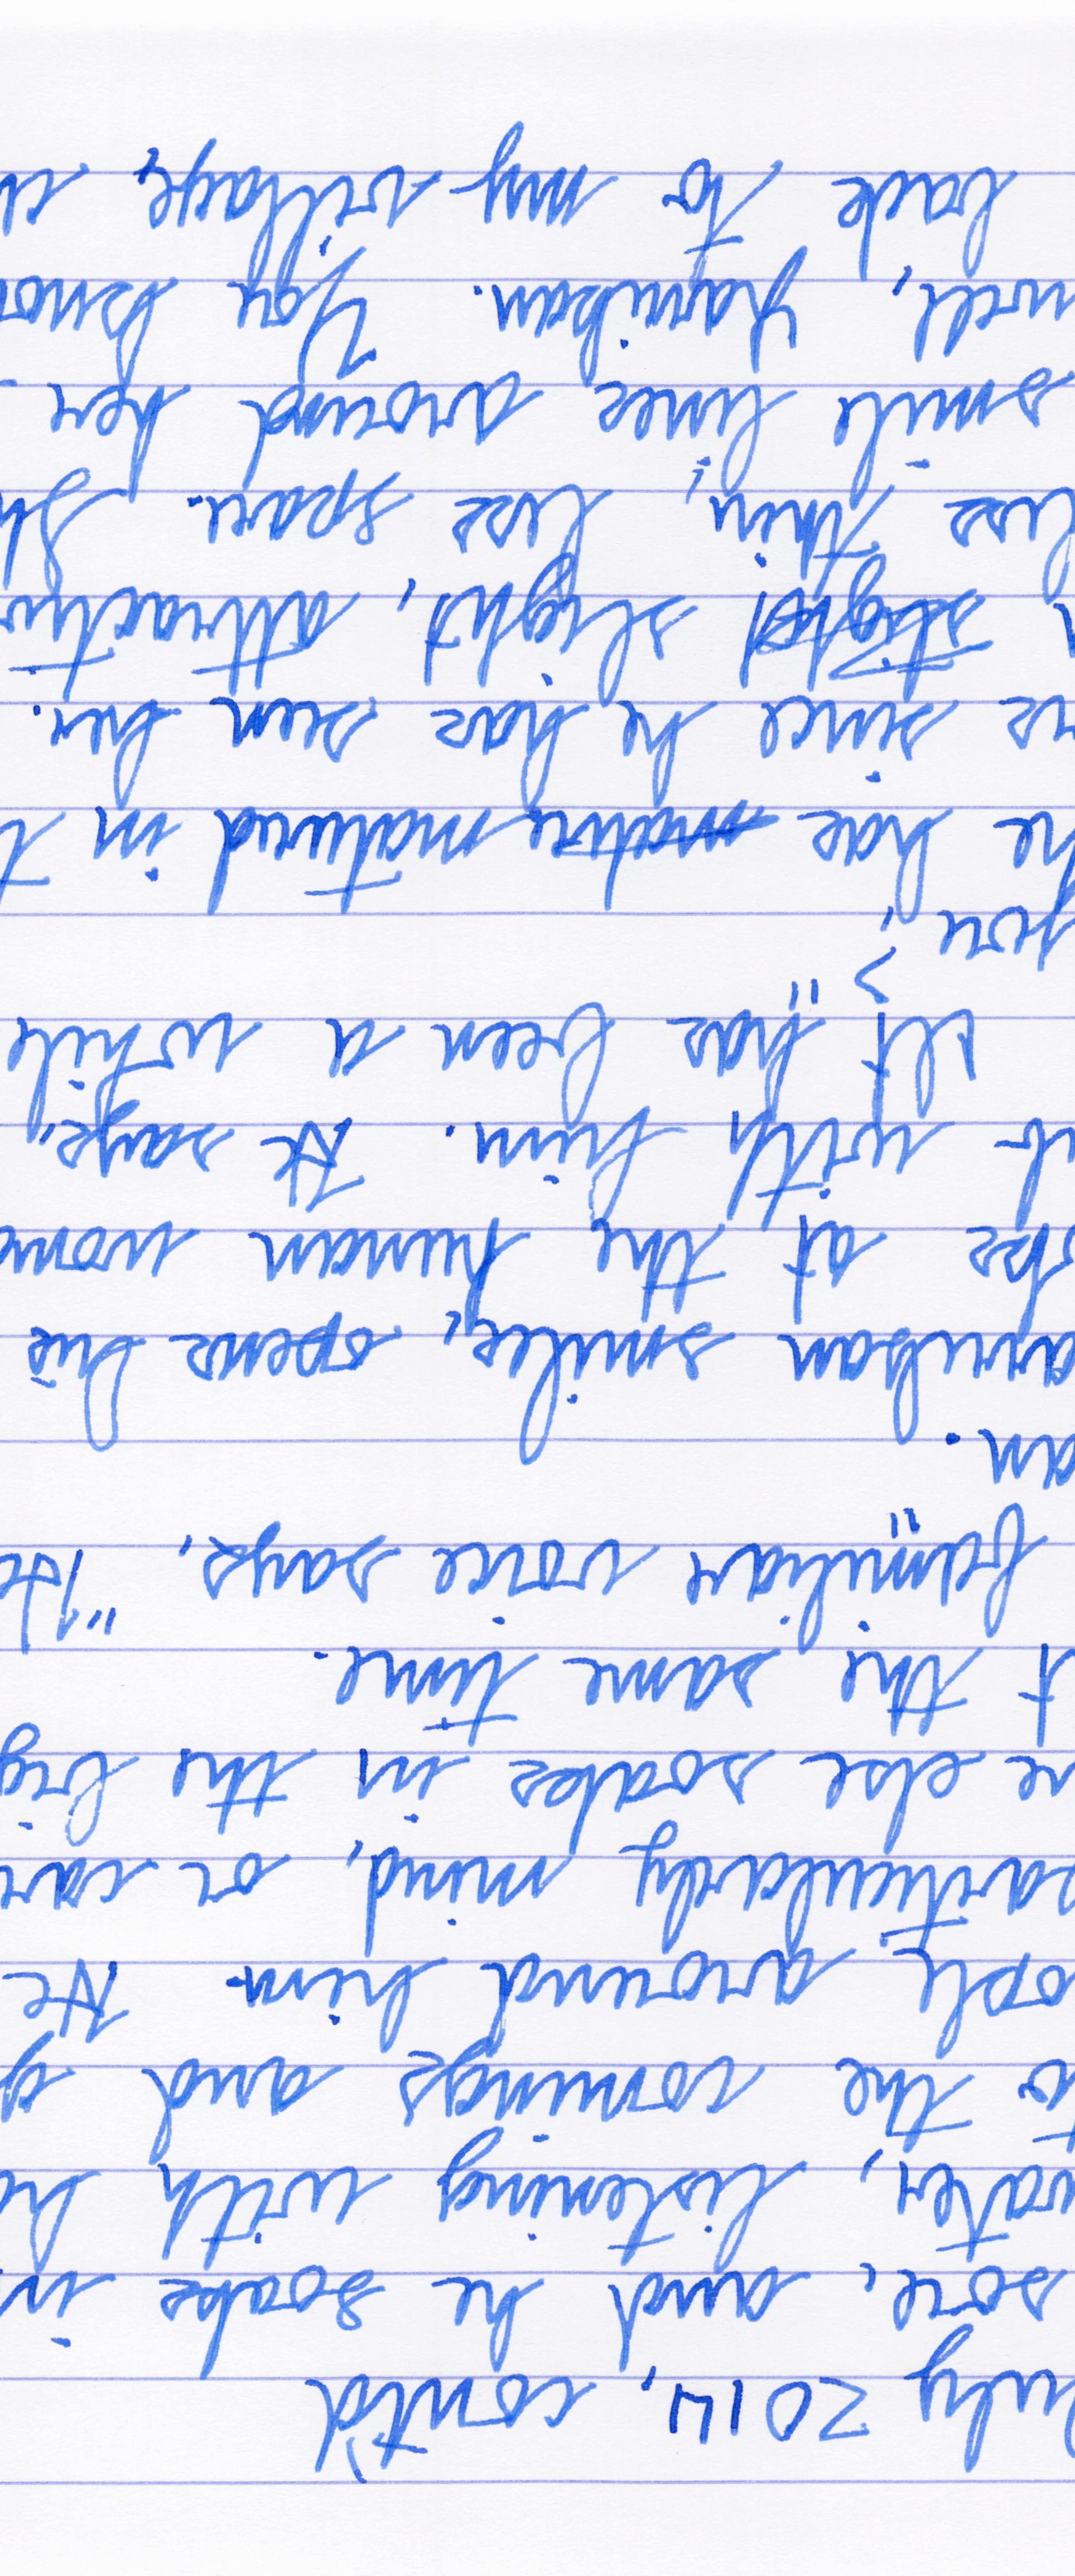 uly 2014, cont'd
sore, and he soaks in
water, listening with ha
to the comings and g
ople around him. He
particularly mind, or car
ne else soaks in the big
t the same time.
familiar voice says, "He
an."
arukan smiles, opens his
oks at the human woma
b with him. He says,
"It has been a while
he has mature matured in t
rs since he has seen her.
n slight slight, attractiv
less thin, less spare. Sh
smile lines around her
well, Yarukan. You know
back to my village, a